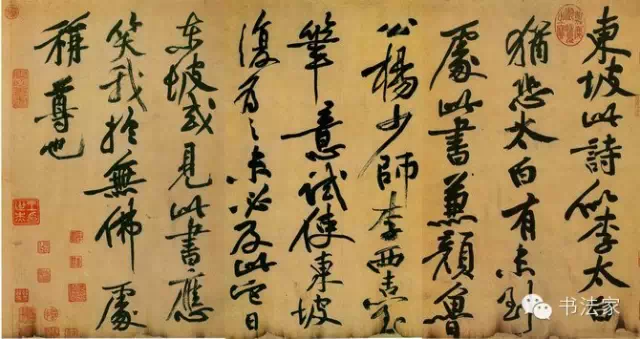 東坡此詩似李太白
猶恐太白有未到
處此書兼顔魯
公楊少師李西臺
筆意試使東坡
復為之未必及此它日
東坡或見此書應
笑我於無佛處
稱尊也
书法家